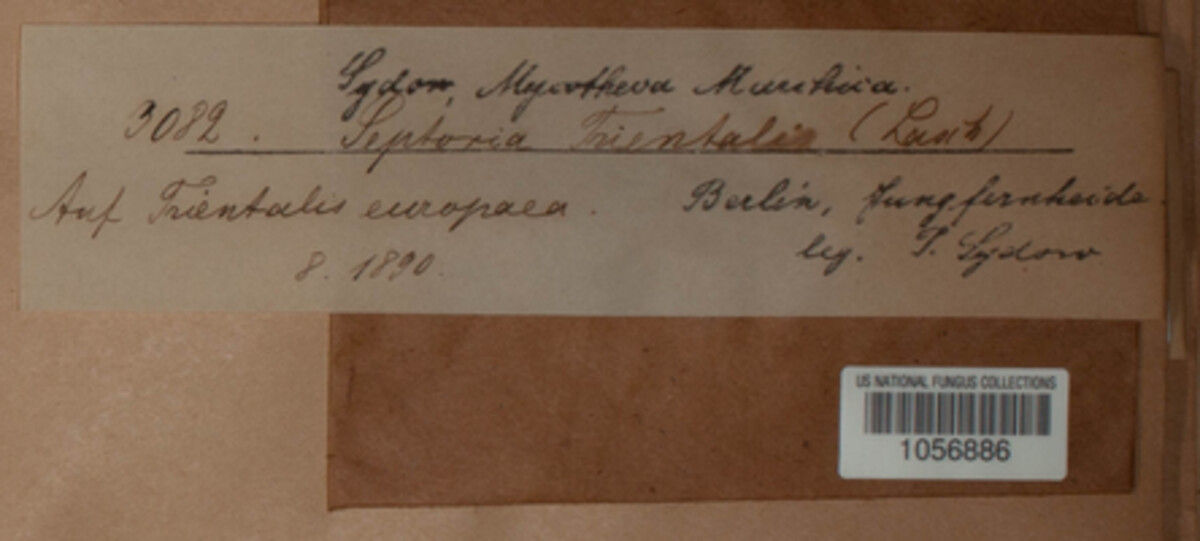 Sydow, Mycotheca Marchica.
3082. Septoria Trientalis (Lasch)
Auf Trientalis europaea. Berlin, Jungfernheide.
8. 1890. leg. P. Sydow
US NATIONAL FUNGUS COLLECTIONS
1056886